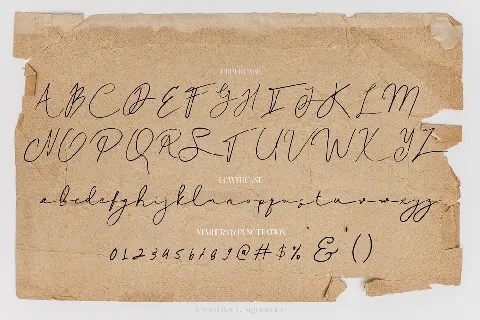 UPPERCASE
A B C D E F G H I J K L M
N O P Q R S T U V W X Y Z
LOWERCASE
a b c d e f g h i j k l m n o p q r s t u v w x y z
NUMBERS & PUNCTUATION
0 1 2 3 4 5 6 7 8 9 @ # $ % " & * ( )